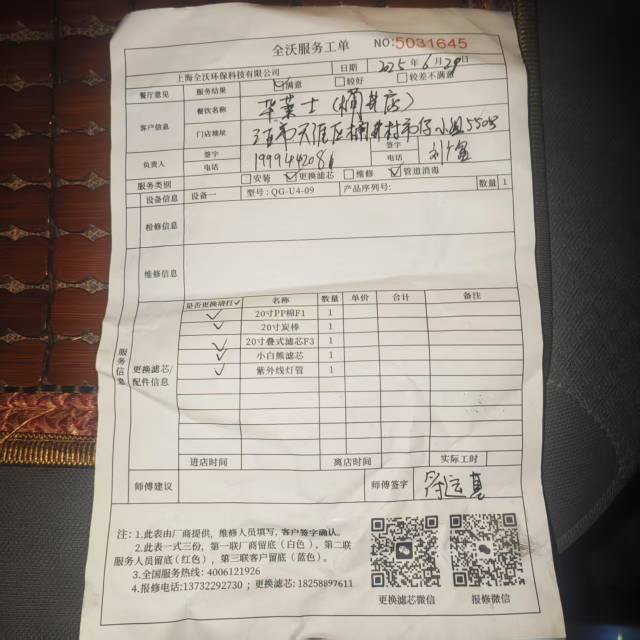 全沃服务工单 NO:5031645
上海全沃环保科技有限公司 日期 2025年6月29日
餐厅意见 服务结果 ☑满意 □较好 □较差不满意
客户信息 餐饮名称 华莱士(桶井店)
门店地址 天涯区桶井村市仔小组550号
负责人 签字 签字
电话 电话
服务类别 □安装 ☑更换滤芯 □维修 ☑管道消毒
设备信息 设备一 型号:QG-U4-09 产品序列号: 数量 1
检修信息
维修信息
服务信息
更换滤芯/配件信息
是否更换请打√ 名称 数量 单价 合计 备注
√ 20寸PP棉F1 1
20寸炭棒 1
√ 20寸叠式滤芯F3 1
√ 小白熊滤芯 1
√ 紫外线灯管 1
进店时间 离店时间 实际工时
师傅建议 师傅签字
注:1.此表由厂商提供,维修人员填写,客户签字确认。
2.此表一式三份,第一联厂商留底(白色),第二联
服务人员留底(红色),第三联客户留底(蓝色)。
3.全国服务热线:4006121926
4.报修电话:13732292730 ;更换滤芯:18258897611
更换滤芯微信 报修微信